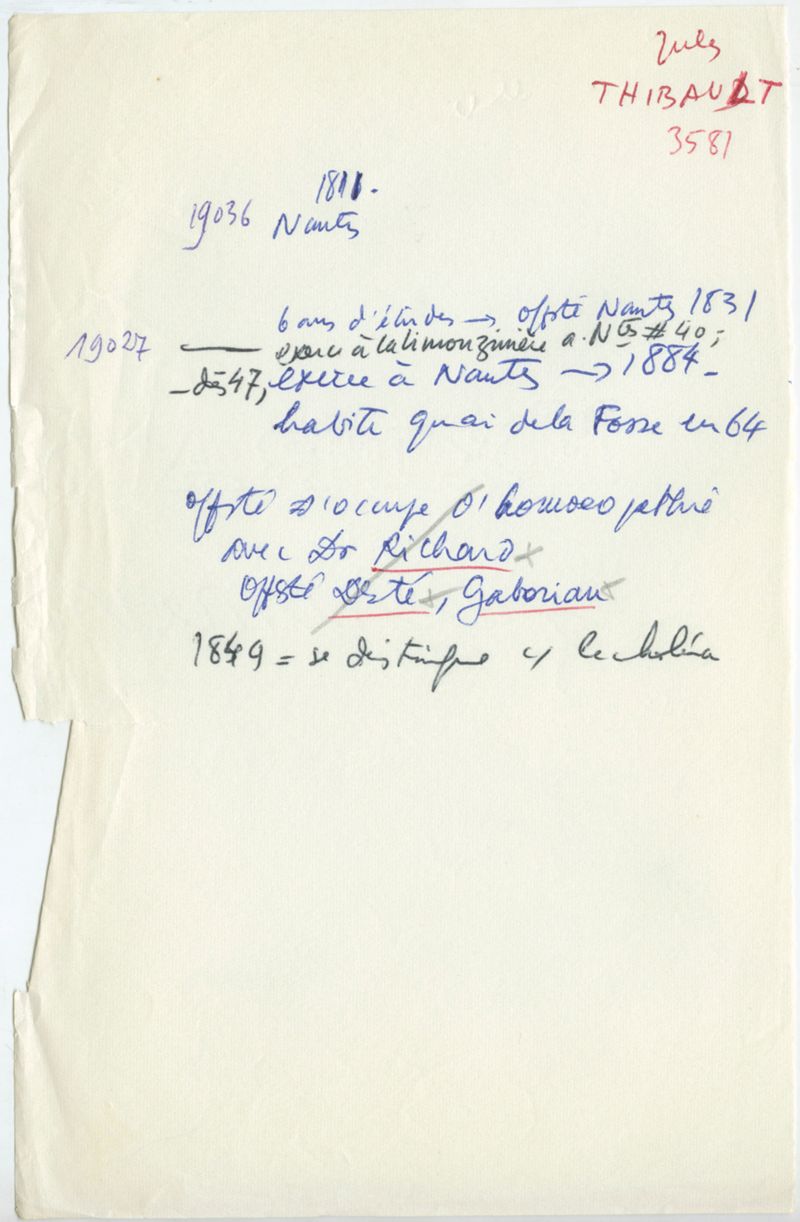 Jules
THIBAULT
3581
1811.
19036 Nantes
6 ans d'études → offsté Nantes 1831
19027 — exerce à la limouzinière a. Ntes # 40;
- dès 47, exerce à Nantes → 1884 -
habite quai de la Fosse en 64
offsté s'occupe d'homoeopathie
avec Dr Richard x
Offsté Désté x, Gaborian x
1849 = se distingue c/ le choléra